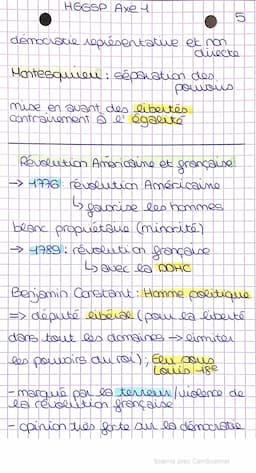 HGGSP Axe 1
5
démocratie représentative et non
directe
Montesquieu : séparation des
pouvoirs
mise en avant des libertés
contrairement à l'égalité
Révolution Américaine et française
→ 1776 : révolution Américaine
↳ favorise les hommes
blanc propriétaire (minorité)
→ 1789 : révolution française
↳ avec la DDHC
Benjamin Constant : Homme politique
=> député libéral (pour la liberté
dans tout les domaines → limiter
les pouvoirs du roi) ; Elu sous
Louis 18e
- marqué par la terreur/violence de
la révolution française
- opinion très forte sur la démocratie
Scanné avec CamScanner